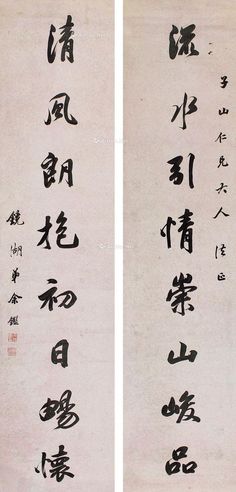 子山仁兄大人法正
流水引情崇山峻品
清風朗抱初日暢懷
鏡湖弟余鑑